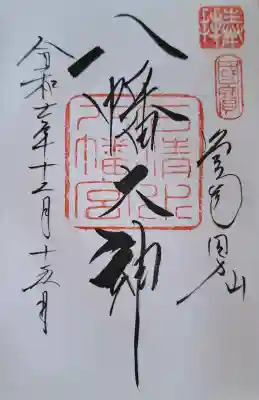 國寶
男山
八幡大神
石清水
八幡宮
令和七年十二月十六日